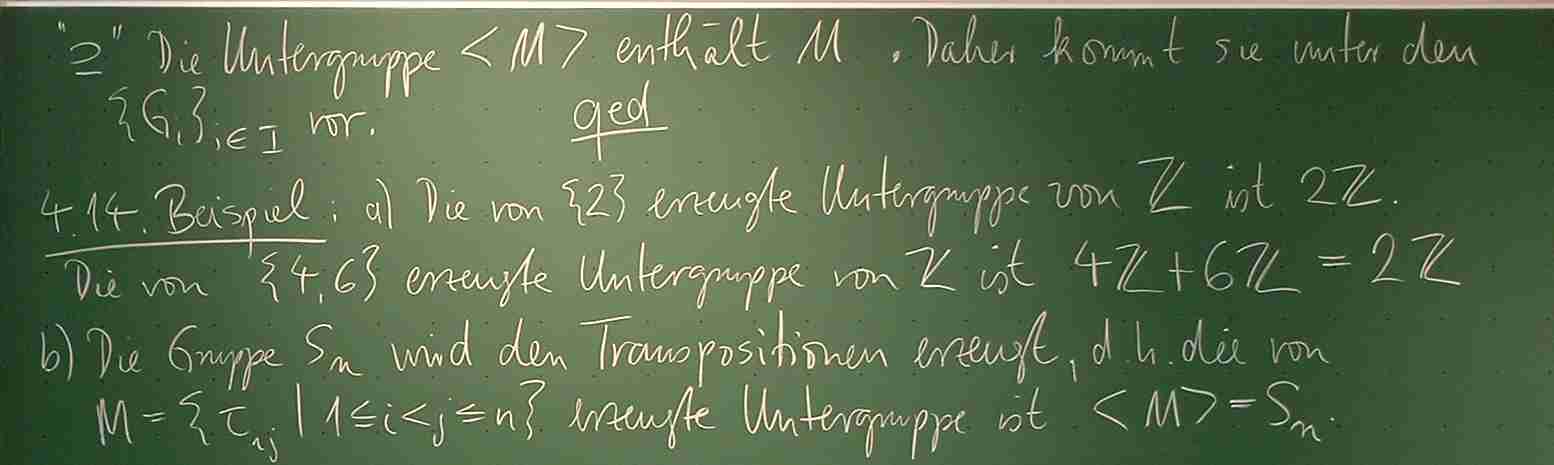 "⊇" Die Untergruppe <M> enthält M. Daher kommt sie unter den
{Gᵢ}ᵢ∈I vor. qed
4.14. Beispiel: a) Die von {2} erzeugte Untergruppe von ℤ ist 2ℤ.
Die von {4,6} erzeugte Untergruppe von ℤ ist 4ℤ+6ℤ = 2ℤ
b) Die Gruppe Sₙ wird den Transpositionen erzeugt, d.h. die von
M = {τᵢⱼ | 1≤i<j≤n} erzeugte Untergruppe ist <M> = Sₙ.